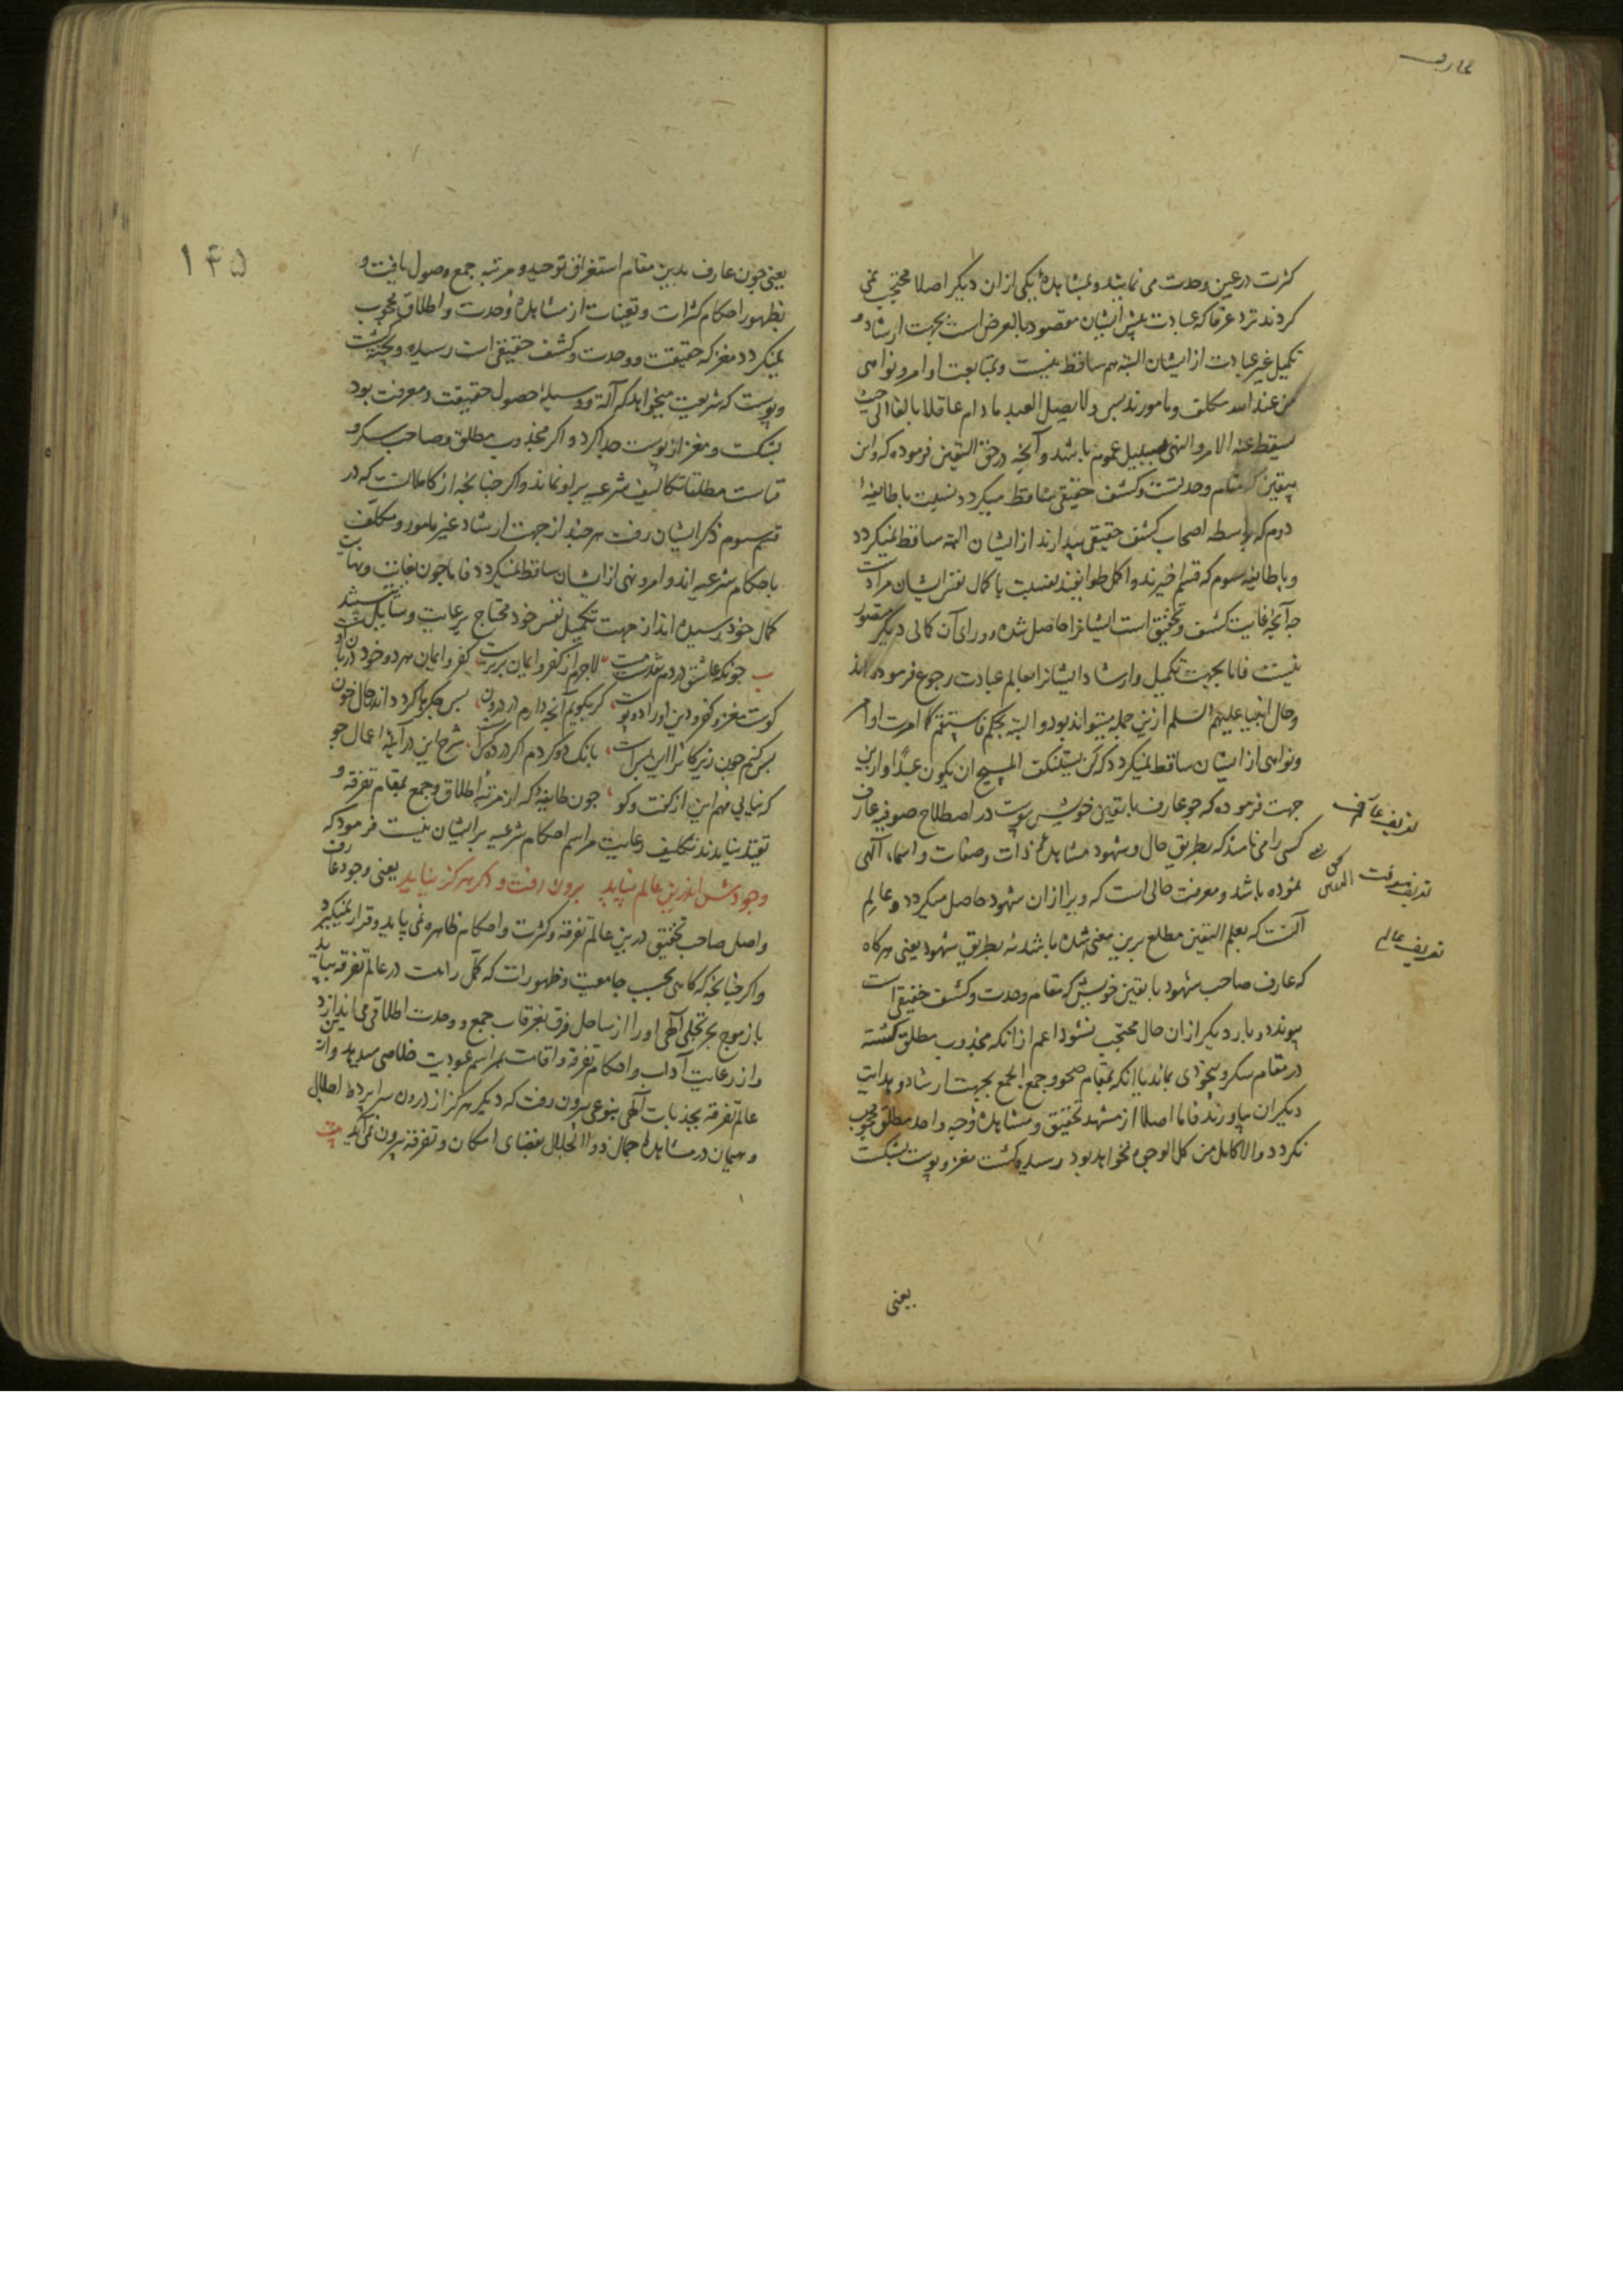 عارف
کثرت در عین وحدت می نمایند و بمشاهدهٔ یکی ازان دیگر اصلا محتجب نمی
کردند نزد عرفا که عبادت پیش ایشان مقصود بالعرض است بجهت ارشاد و
تکمیل غیر عبادت از ایشان البته هم ساقط نیست و بمتابعت اوامر و نواهی
من عند الله مکلف و مامورند پس ولا یصل العبد ما دام عاقلا بالغا الی حیث
یسقط عنه الامر والنهی بسبیل عموم باشد و آنچه در حق الیقین فرموده که و این
یقین که مقام وحدتست و کشف حقیقی ساقط میکردد نسبت با طایفهٔ
دوم که واسطه اصحاب کشف حقیقی پندارند از ایشان البته ساقط نمیکردد
و با طایفه سوم که قسم اخیرند و اکمل طوایفند نسبت با کمال نفس ایشان مرادست
چه آنچه غایت کشف و تحقیق است ایشانرا حاصل شده و ورای آن کمالی دیکر متصور
نیست فاما بجهت تکمیل و ارشاد ایشانرا بعالم عبادت رجوع فرموده اند
و حال انبیا علیهم السلم ازین جمله میتواند بود و البته بحکم فاستقم کما امرت اوامر
و نواهی از ایشان ساقط نمیکردد که لن یستنکف المسیح ان یکون عبدا و ازین
جهت فرموده که چو عارف با یقین خویش پیوست در اصطلاح صوفیه عارف
کسی را می نامند که بطریق حال و شهود مشاهدهٔ ذات و صفات و اسماء الهی
نموده باشد و معرفت حالی است که ویرا ازان شهود حاصل میکردد و عالم
آنست که بعلم الیقین مطلع برین معنی شده باشد نه بطریق شهود یعنی هرکاه
که عارف صاحب شهود با یقین خویش که مقام وحدت و کشف حقیقی است
پیوندد و بار دیکر ازان حال محتجب نشود اعم ازانکه مجذوب مطلق کشته
در مقام سکر و بیخودی بماند یا انکه بمقام صحو و جمع الجمع بجهت ارشاد و هدایت
دیکران بیاورند فاما اصلا از مشهد تحقیق و مشاهدهٔ وجه واحد مطلق محجوب
نکردد والا کامل من کل الوجوه نخواهد بود رسیده کشت مغز و پوست بشکست
تعریف عارف
تعریف معرفت
تعریف عالم
یعنی
۱۴۵
یعنی چون عارف بدین مقام استغراق توحید و مرتبه جمع وصول یافت و
بظهور احکام کثرات و تعینات از مشاهدهٔ وحدت و اطلاق محجوب
نمیکردد مغز که حقیقت و وحدت و کشف حقیقی است رسیده و پخته کشت
و پوست که شریعت میخواهد که آلة و وسیلهٔ حصول حقیقت و معرفت بود
بشکست و مغز از پوست جدا کرد و اکر مجذوب مطلق و صاحب سکر و
فناست مطلقا تکالیف شرعیه بر او نماند و اکر چنانچه از کاملانست که در
قسم سوم ذکر ایشان رفت هر چند از جهت ارشاد غیر مامور و مکلف
باحکام شرعیه اند و امر و نهی از ایشان ساقط نمیکردد فاما چون بغایت و نهایت
کمال خود رسیده اند از جهت تکمیل نفس خود محتاج برعایت وسایل نیستند
چونکه عاشق در دم نقدست مست لاجرم از کفر و ایمان برترست کفر و ایمان هر دو خود دربان او
کوست مغز و کفر و دین او را دو پوست کر بکویم آنچه دارم در درون بس جکرها کردد اندر حال خون
بس کنم چون زیرکانرا این بس است بانک دو کردم اکر در ده کس است شرح این در آینهٔ اعمال جو
که نیابی فهم این از کفت و کو چون طایفهٔ که از مرتبهٔ اطلاق و جمع بمقام تفرقه و
تقید نیایند تکلیف رعایت مراسم احکام شرعیه بر ایشان نیست فرمود که
وجودش اندرین عالم نپاید برون رفت و دکر هرکز نیاید یعنی وجود عارف
واصل صاحب تحقیق درین عالم تفرقه و کثرت و احکام ظاهره نمی پاید و قرار نمیکیرد
و اکر چنانچه که کاهی بحسب جامعیت و ظهورات که کمل راست در عالم تفرقه بیاید
باز موج بحر تجلی الهی او را از ساحل فرق بغرقاب جمع و وحدت اطلاقی می اندازد
و از رعایت آداب و احکام تفرقه و اقامت بمراسم عبودیت خلاصی میدهد و ازین
عالم تفرقه بجذبات الهی بنوعی بیرون رفت که دیکر هرکز از درون سراپردهٔ اجلال
و هیمان در مشاهدهٔ جمال ذوالجلال بفضای امکان و تفرقه بیرون نمی آید